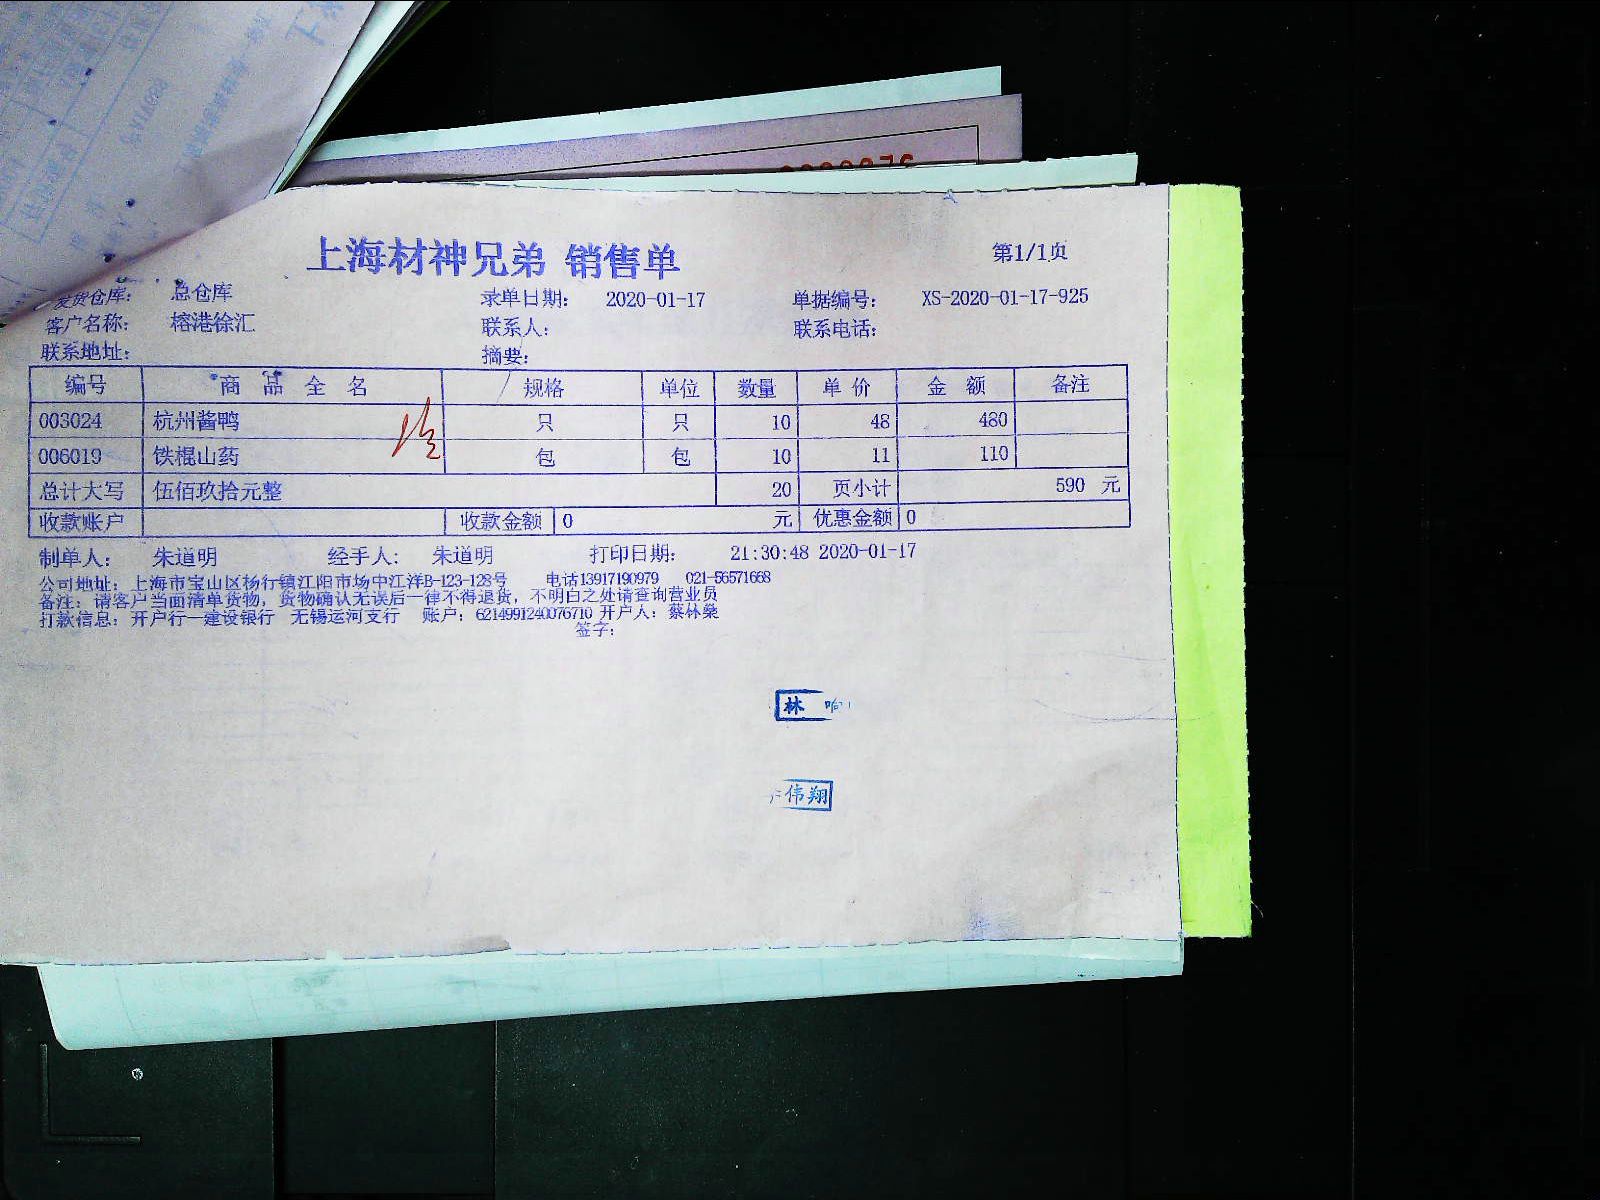 上海材神兄弟 销售单
第1/1页
发货仓库： 总仓库 录单日期： 2020-01-17 单据编号： XS-2020-01-17-925
客户名称： 榕港徐汇 联系人： 联系电话：
联系地址： 摘要：
编号 商品全名 规格 单位 数量 单价 金额 备注
003024 杭州酱鸭 只 只 10 48 480
006019 铁棍山药 包 包 10 11 110
总计大写 伍佰玖拾元整 20 页小计 590 元
收款账户 收款金额 0 元 优惠金额 0
制单人： 朱道明 经手人： 朱道明 打印日期： 21:30:48 2020-01-17
公司地址：上海市宝山区杨行镇江阳市场中江洋B-123-128号 电话13917190979 021-56571668
备注：请客户当面清单货物，货物确认无误后一律不得退货，不明白之处请查询营业员
打款信息：开户行—建设银行 无锡运河支行 账户：6214991240076710 开户人：蔡林燊
签字：
林
伟翔